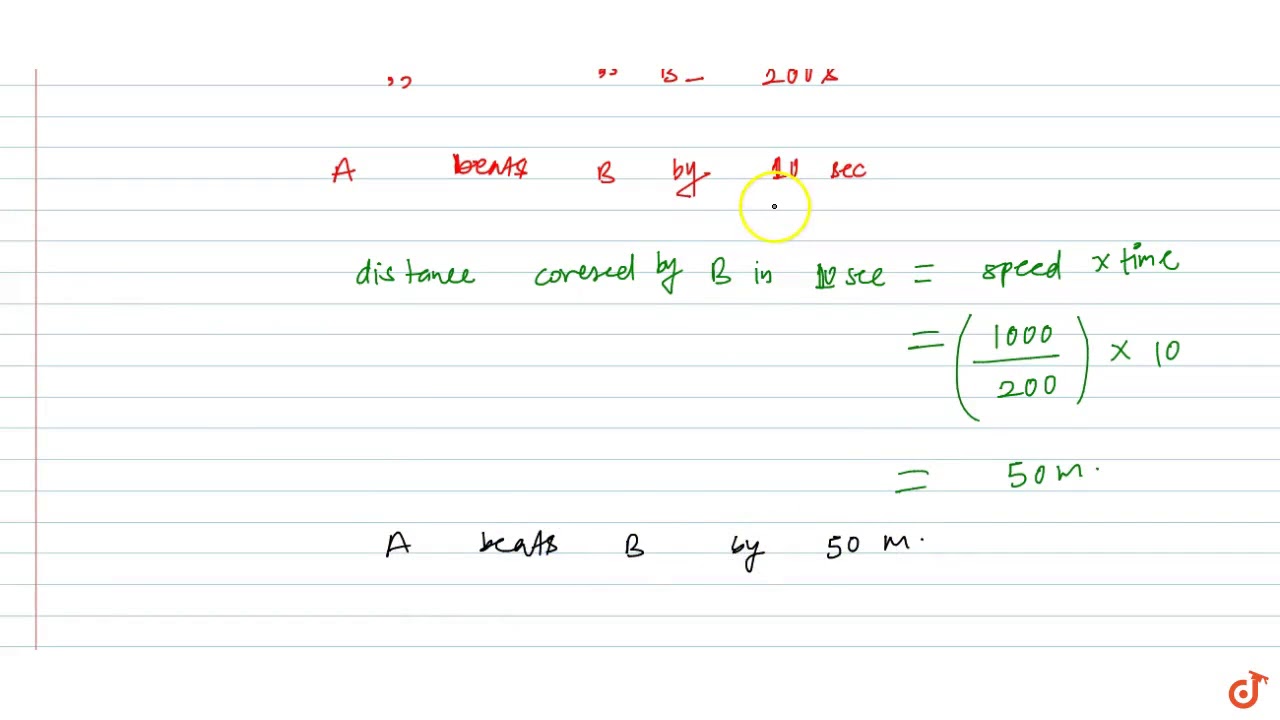 ,, ,, B - 200s
A beats B by 10 sec
distance covered by B in 10 sec = speed x time
= (1000/200) x 10
= 50 m.
A beats B by 50 m.